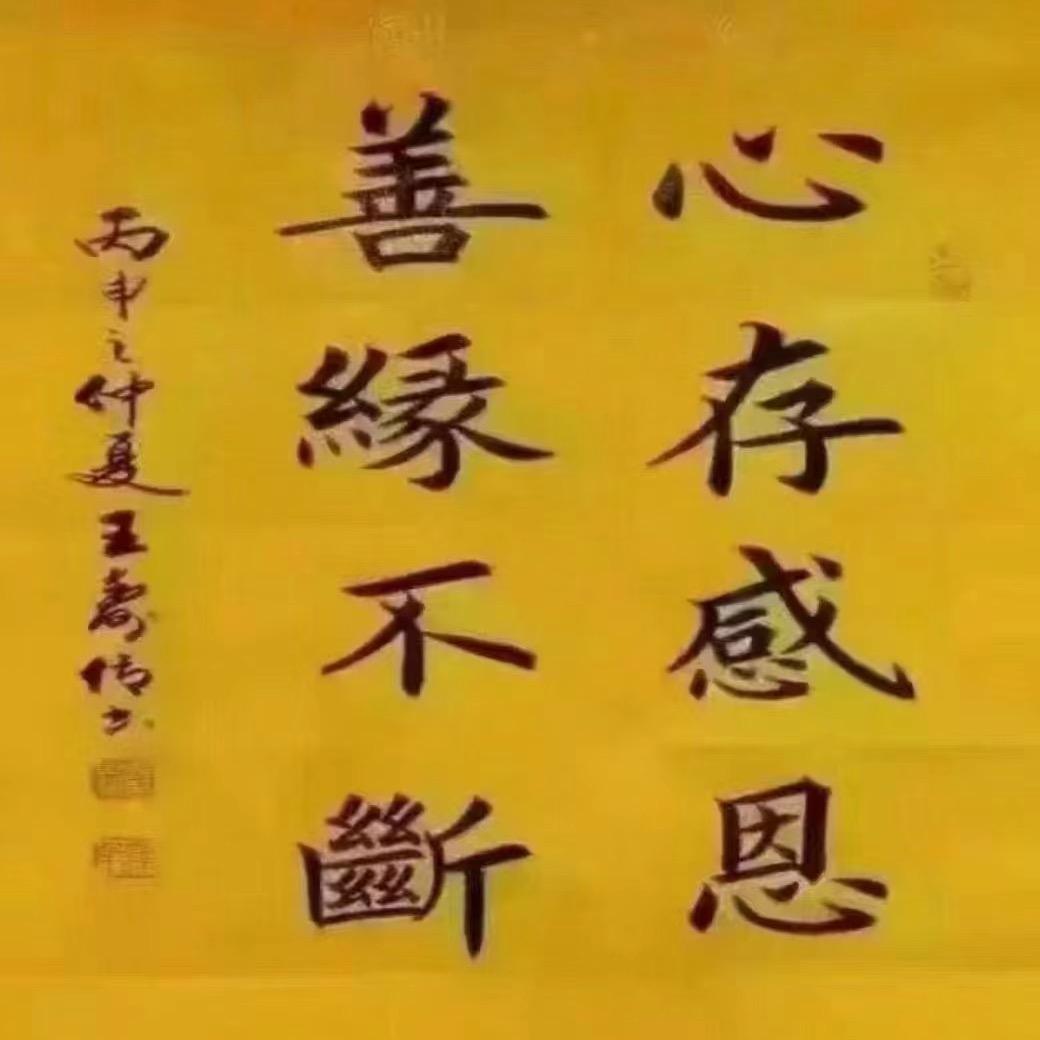 心存感恩
善緣不斷
丙申之仲夏王壽信書